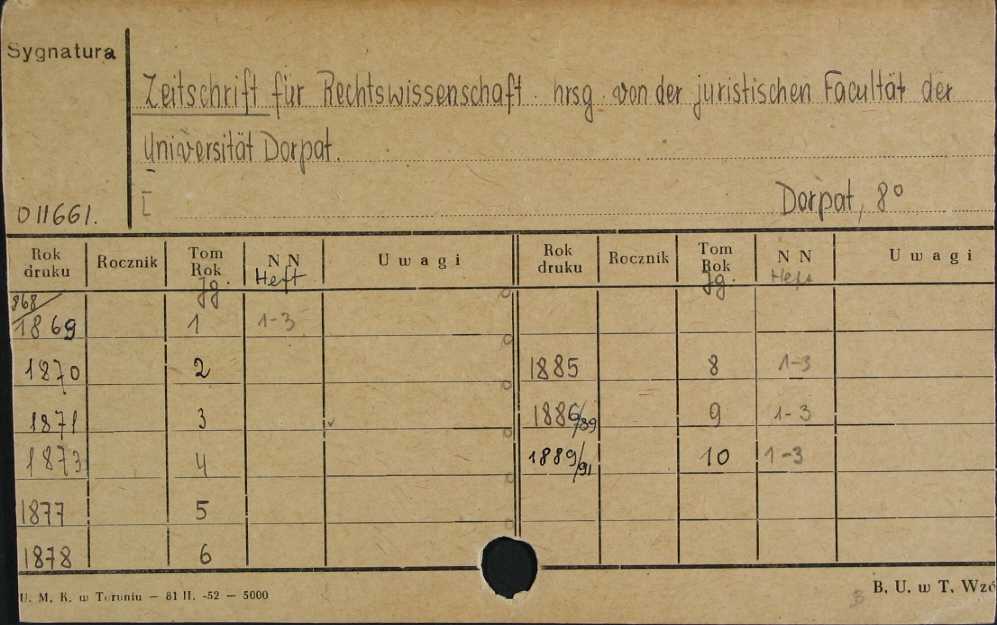 Sygnatura
Zeitschrift für Rechtswissenschaft hrsg. von der juristischen Facultät der
Universität Dorpat.
I Dorpat, 8°
011661.
Rok druku Rocznik Tom Rok N N Uwagi Rok druku Rocznik Tom Rok N N Uwagi
Jg. Heft Jg. Heft
868/
1869 1 1-3
1870 2 1885 8 1-3
1871 3 1886/89 9 1-3
1873 4 1889/91 10 1-3
1877 5
1878 6
U. M. K. w Toruniu — 81 II. -52 — 5000
B. U. w T. Wzó